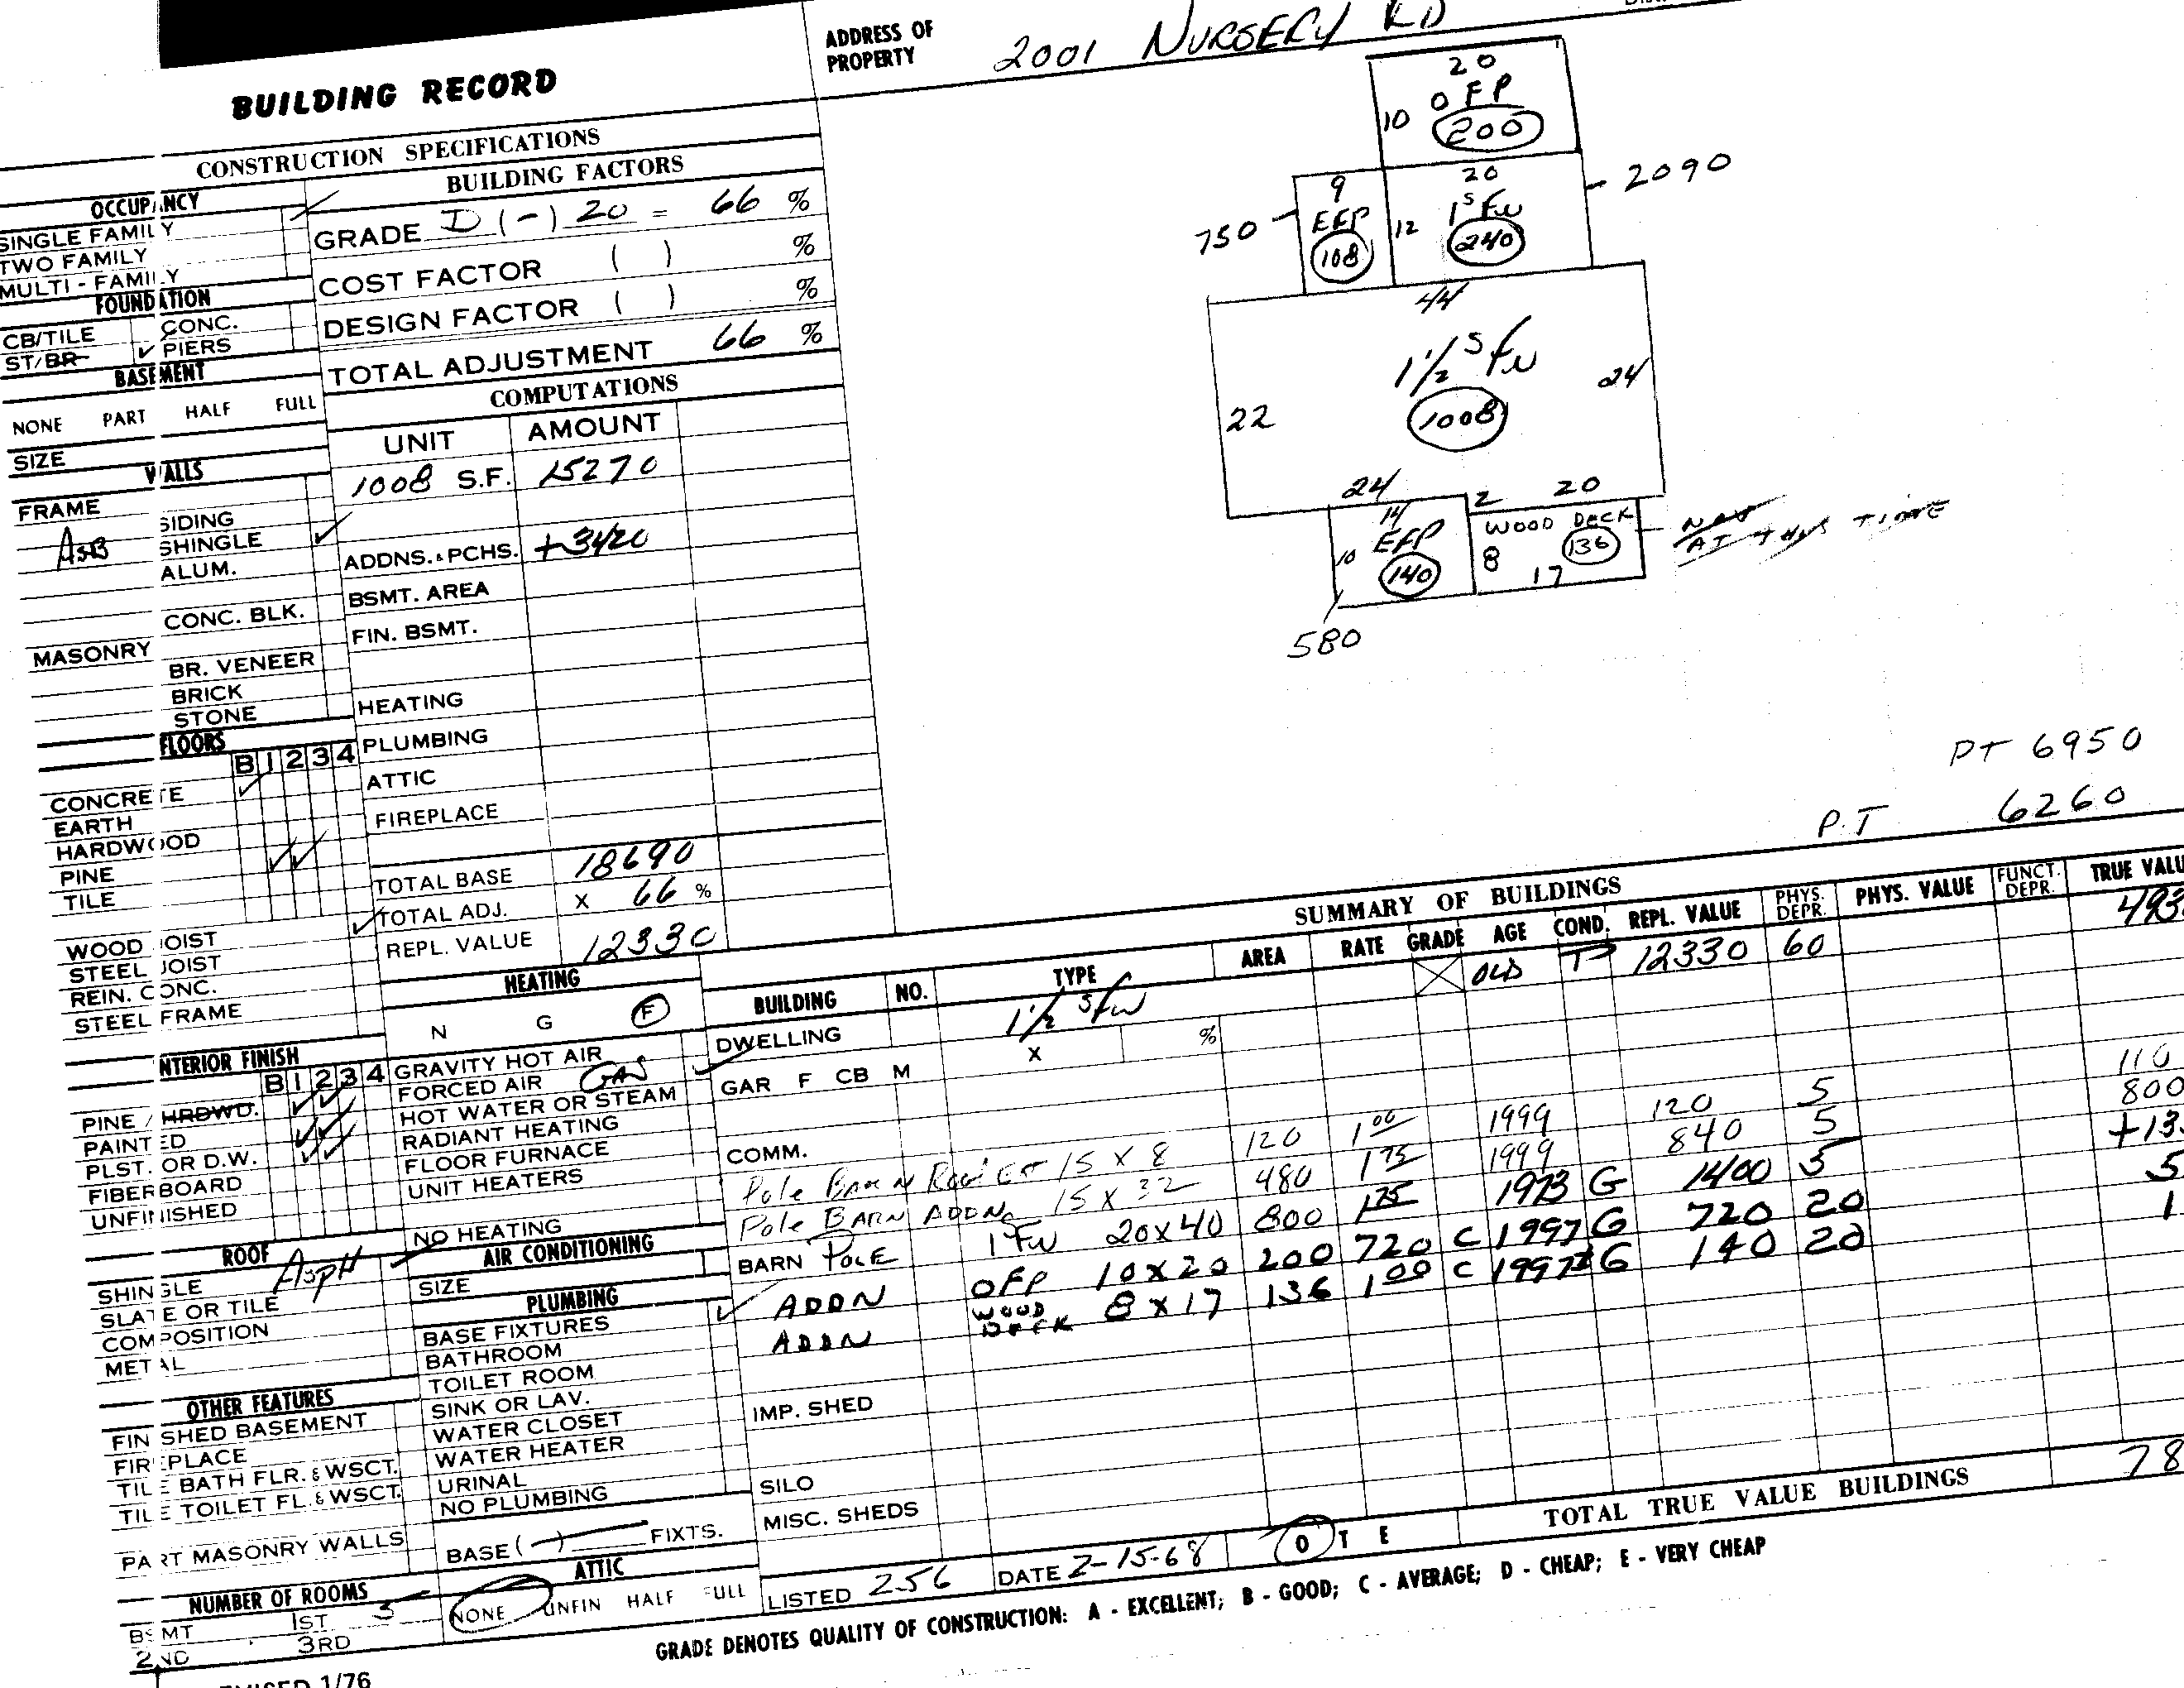 ADDRESS OF
PROPERTY 2001 NURSERY RD
BUILDING RECORD
CONSTRUCTION SPECIFICATIONS
OCCUPANCY
SINGLE FAMILY
TWO FAMILY
MULTI - FAMILY
FOUNDATION
CB/TILE CONC.
ST/BR ✓ PIERS
BASEMENT
NONE PART HALF FULL
SIZE
WALLS
FRAME
SIDING
AsB SHINGLE ✓
ALUM.
CONC. BLK.
MASONRY
BR. VENEER
BRICK
STONE
FLOORS
B 1 2 3 4
CONCRETE ✓
EARTH
HARDWOOD
PINE ✓ ✓
TILE
WOOD JOIST ✓
STEEL JOIST
REIN. CONC.
STEEL FRAME
INTERIOR FINISH
B 1 2 3 4
PINE / HRDWD. ✓ ✓
PAINTED ✓ ✓
PLST. OR D.W. ✓ ✓
FIBERBOARD
UNFINISHED
ROOF
SHINGLE AspH
SLATE OR TILE
COMPOSITION
METAL
OTHER FEATURES
FINISHED BASEMENT
FIREPLACE
TILE BATH FLR. & WSCT.
TILE TOILET FL. & WSCT.
PART MASONRY WALLS
NUMBER OF ROOMS
BSMT 1ST 5
2ND 3RD
BUILDING FACTORS
GRADE D (-) 20 = 66 %
COST FACTOR ( ) %
DESIGN FACTOR ( ) %
TOTAL ADJUSTMENT 66 %
COMPUTATIONS
UNIT AMOUNT
1008 S.F. 15270
ADDNS. & PCHS. +3420
BSMT. AREA
FIN. BSMT.
HEATING
PLUMBING
ATTIC
FIREPLACE
TOTAL BASE 18690
TOTAL ADJ. X 66 %
REPL. VALUE 12330
HEATING
N G F
GRAVITY HOT AIR
FORCED AIR GAS ✓
HOT WATER OR STEAM
RADIANT HEATING
FLOOR FURNACE
UNIT HEATERS
NO HEATING
AIR CONDITIONING
SIZE
PLUMBING
BASE FIXTURES ✓
BATHROOM
TOILET ROOM
SINK OR LAV.
WATER CLOSET
WATER HEATER
URINAL
NO PLUMBING
BASE ( - ) FIXTS.
ATTIC
NONE UNFIN HALF FULL
20
OFP
10 200
20
1 S Fw
12 240
2090
9
EFP
108
750
44
1½ S Fw
1008
22 24
24 2 20
14
EFP
10 140
580
WOOD DECK
8 136
17
AT THIS TIME
PT 6950
P.T 6260
SUMMARY OF BUILDINGS
BUILDING NO. TYPE AREA RATE GRADE AGE COND. REPL. VALUE PHYS. DEPR. PHYS. VALUE FUNCT. DEPR. TRUE VALU
DWELLING 1½ S Fw OLD 12330 60 493
GAR F CB M X %
COMM.
Pole Barn 15 X 8 120 1 00 1999 120 5 110
Pole BARN ADDN 15 X 32 480 1 75 1999 840 5 800
BARN POLE 1 Fw 20 x 40 800 1 75 1973 G 1400 5 +13
ADDN OFP 10 x 20 200 720 C 1997 G 720 20 5
ADDN WOOD DECK 8 x 17 136 1 00 C 1997 G 140 20 1
IMP. SHED
SILO
MISC. SHEDS
TOTAL TRUE VALUE BUILDINGS 78
LISTED 256 DATE 2-15-68 O T E
GRADE DENOTES QUALITY OF CONSTRUCTION: A - EXCELLENT; B - GOOD; C - AVERAGE; D - CHEAP; E - VERY CHEAP
1/76